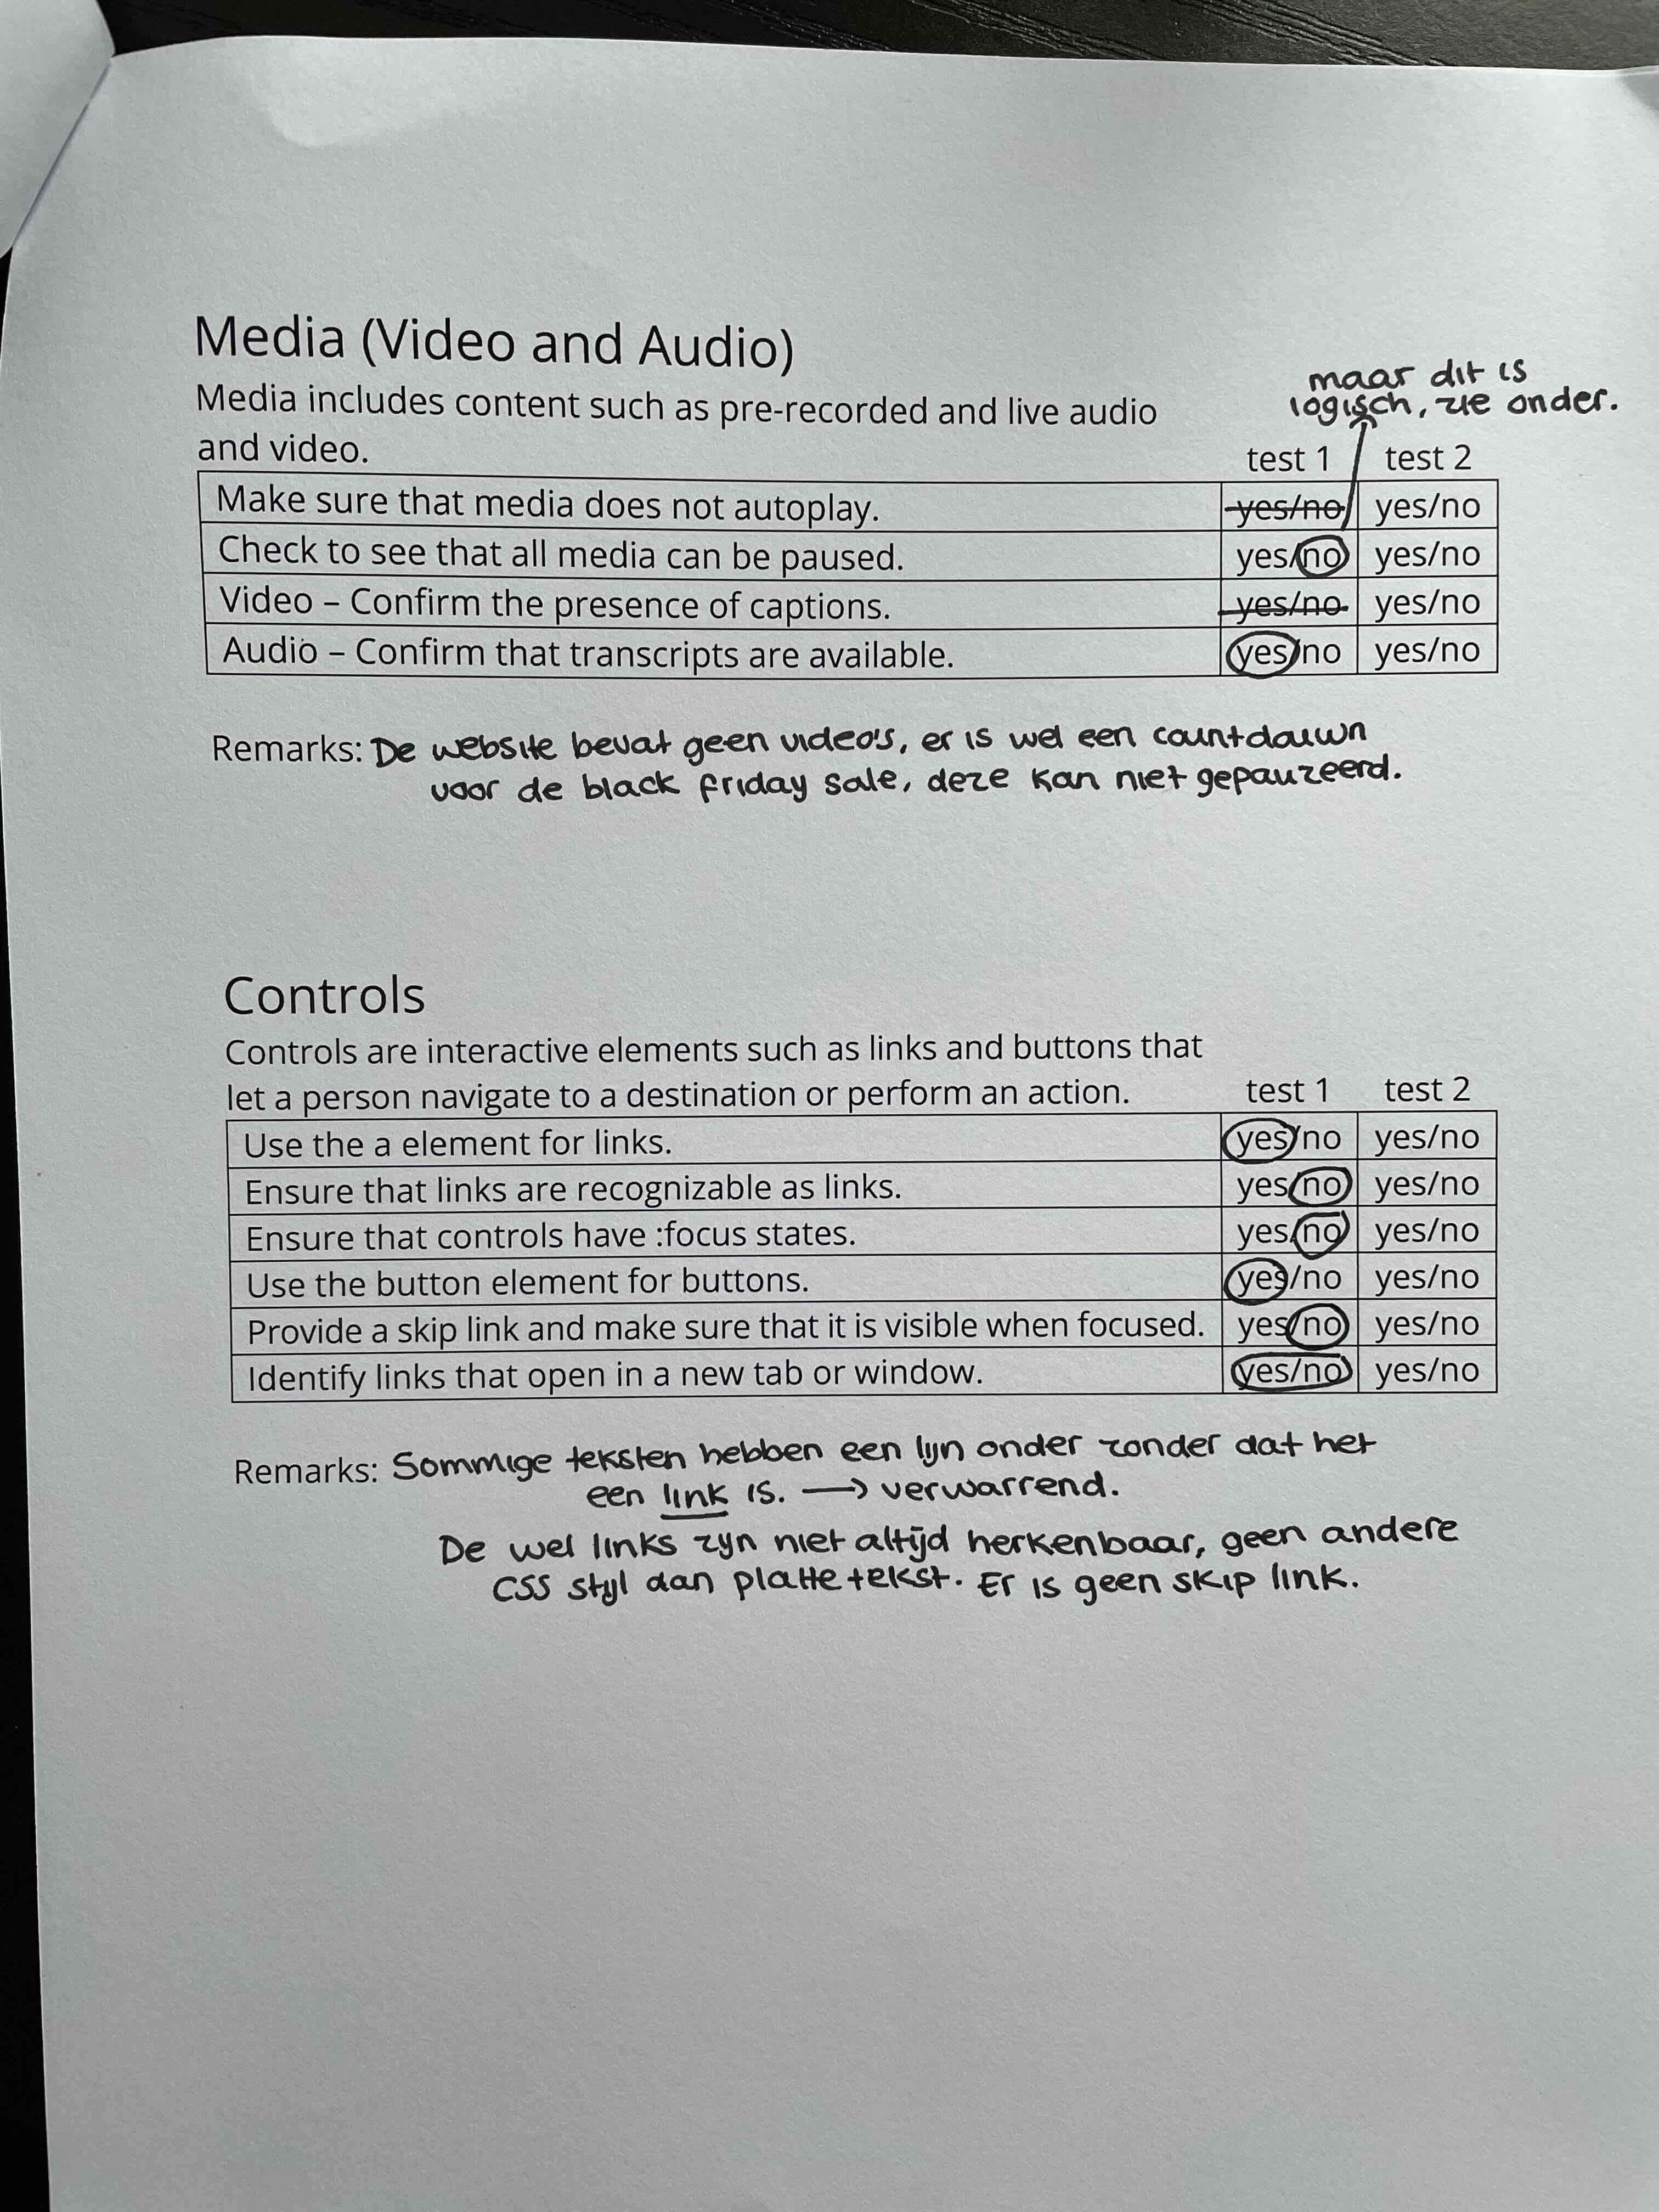 Media (Video and Audio)
maar dit is
logisch, zie onder.
Media includes content such as pre-recorded and live audio
and video.
test 1 test 2
Make sure that media does not autoplay. yes/no yes/no
Check to see that all media can be paused. yes/no yes/no
Video – Confirm the presence of captions. yes/no yes/no
Audio – Confirm that transcripts are available. yes/no yes/no
Remarks: De website bevat geen video's, er is wel een countdouwn
voor de black friday sale, deze kan niet gepauzeerd.
Controls
Controls are interactive elements such as links and buttons that
let a person navigate to a destination or perform an action. test 1 test 2
Use the a element for links. yes/no yes/no
Ensure that links are recognizable as links. yes/no yes/no
Ensure that controls have :focus states. yes/no yes/no
Use the button element for buttons. yes/no yes/no
Provide a skip link and make sure that it is visible when focused. yes/no yes/no
Identify links that open in a new tab or window. yes/no yes/no
Remarks: Sommige teksten hebben een lijn onder zonder dat het
een link is. → verwarrend.
De wel links zijn niet altijd herkenbaar, geen andere
CSS stijl dan platte tekst. Er is geen skip link.